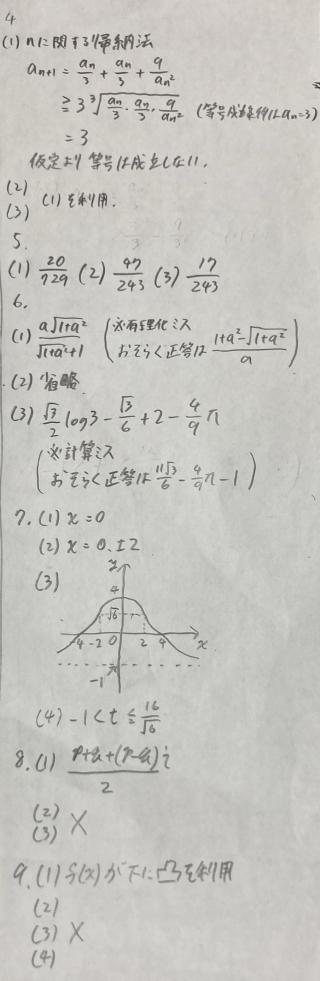 4
(1) nに関する帰納法
a_{n+1} = a_n/3 + a_n/3 + 9/a_n²
≧ 3 ∛(a_n/3 · a_n/3 · 9/a_n²) (等号成立条件は a_n=3)
= 3
仮定より等号は成立しない.
(2)
(3) (1)を利用.
5.
(1) 20/729 (2) 47/243 (3) 17/243
6.
(1) a√(1+a²)/(√(1+a²)+1) (※有理化ミス
おそらく正答は (1+a²-√(1+a²))/a)
(2) 省略
(3) √3/2 log3 - √3/6 + 2 - 4/9 π
(※計算ミス
おそらく正答は 11√3/6 - 4/9 π - 1)
7. (1) x=0
(2) x=0, ±2
(3)
y
4
√6
-4 -2 0 2 4 x
-1
(4) -1<t≦16/√6
8. (1) (p+q+(p-q)i)/2
(2)
(3) ×
9. (1) f(x)が下に凸を利用
(2)
(3) ×
(4)